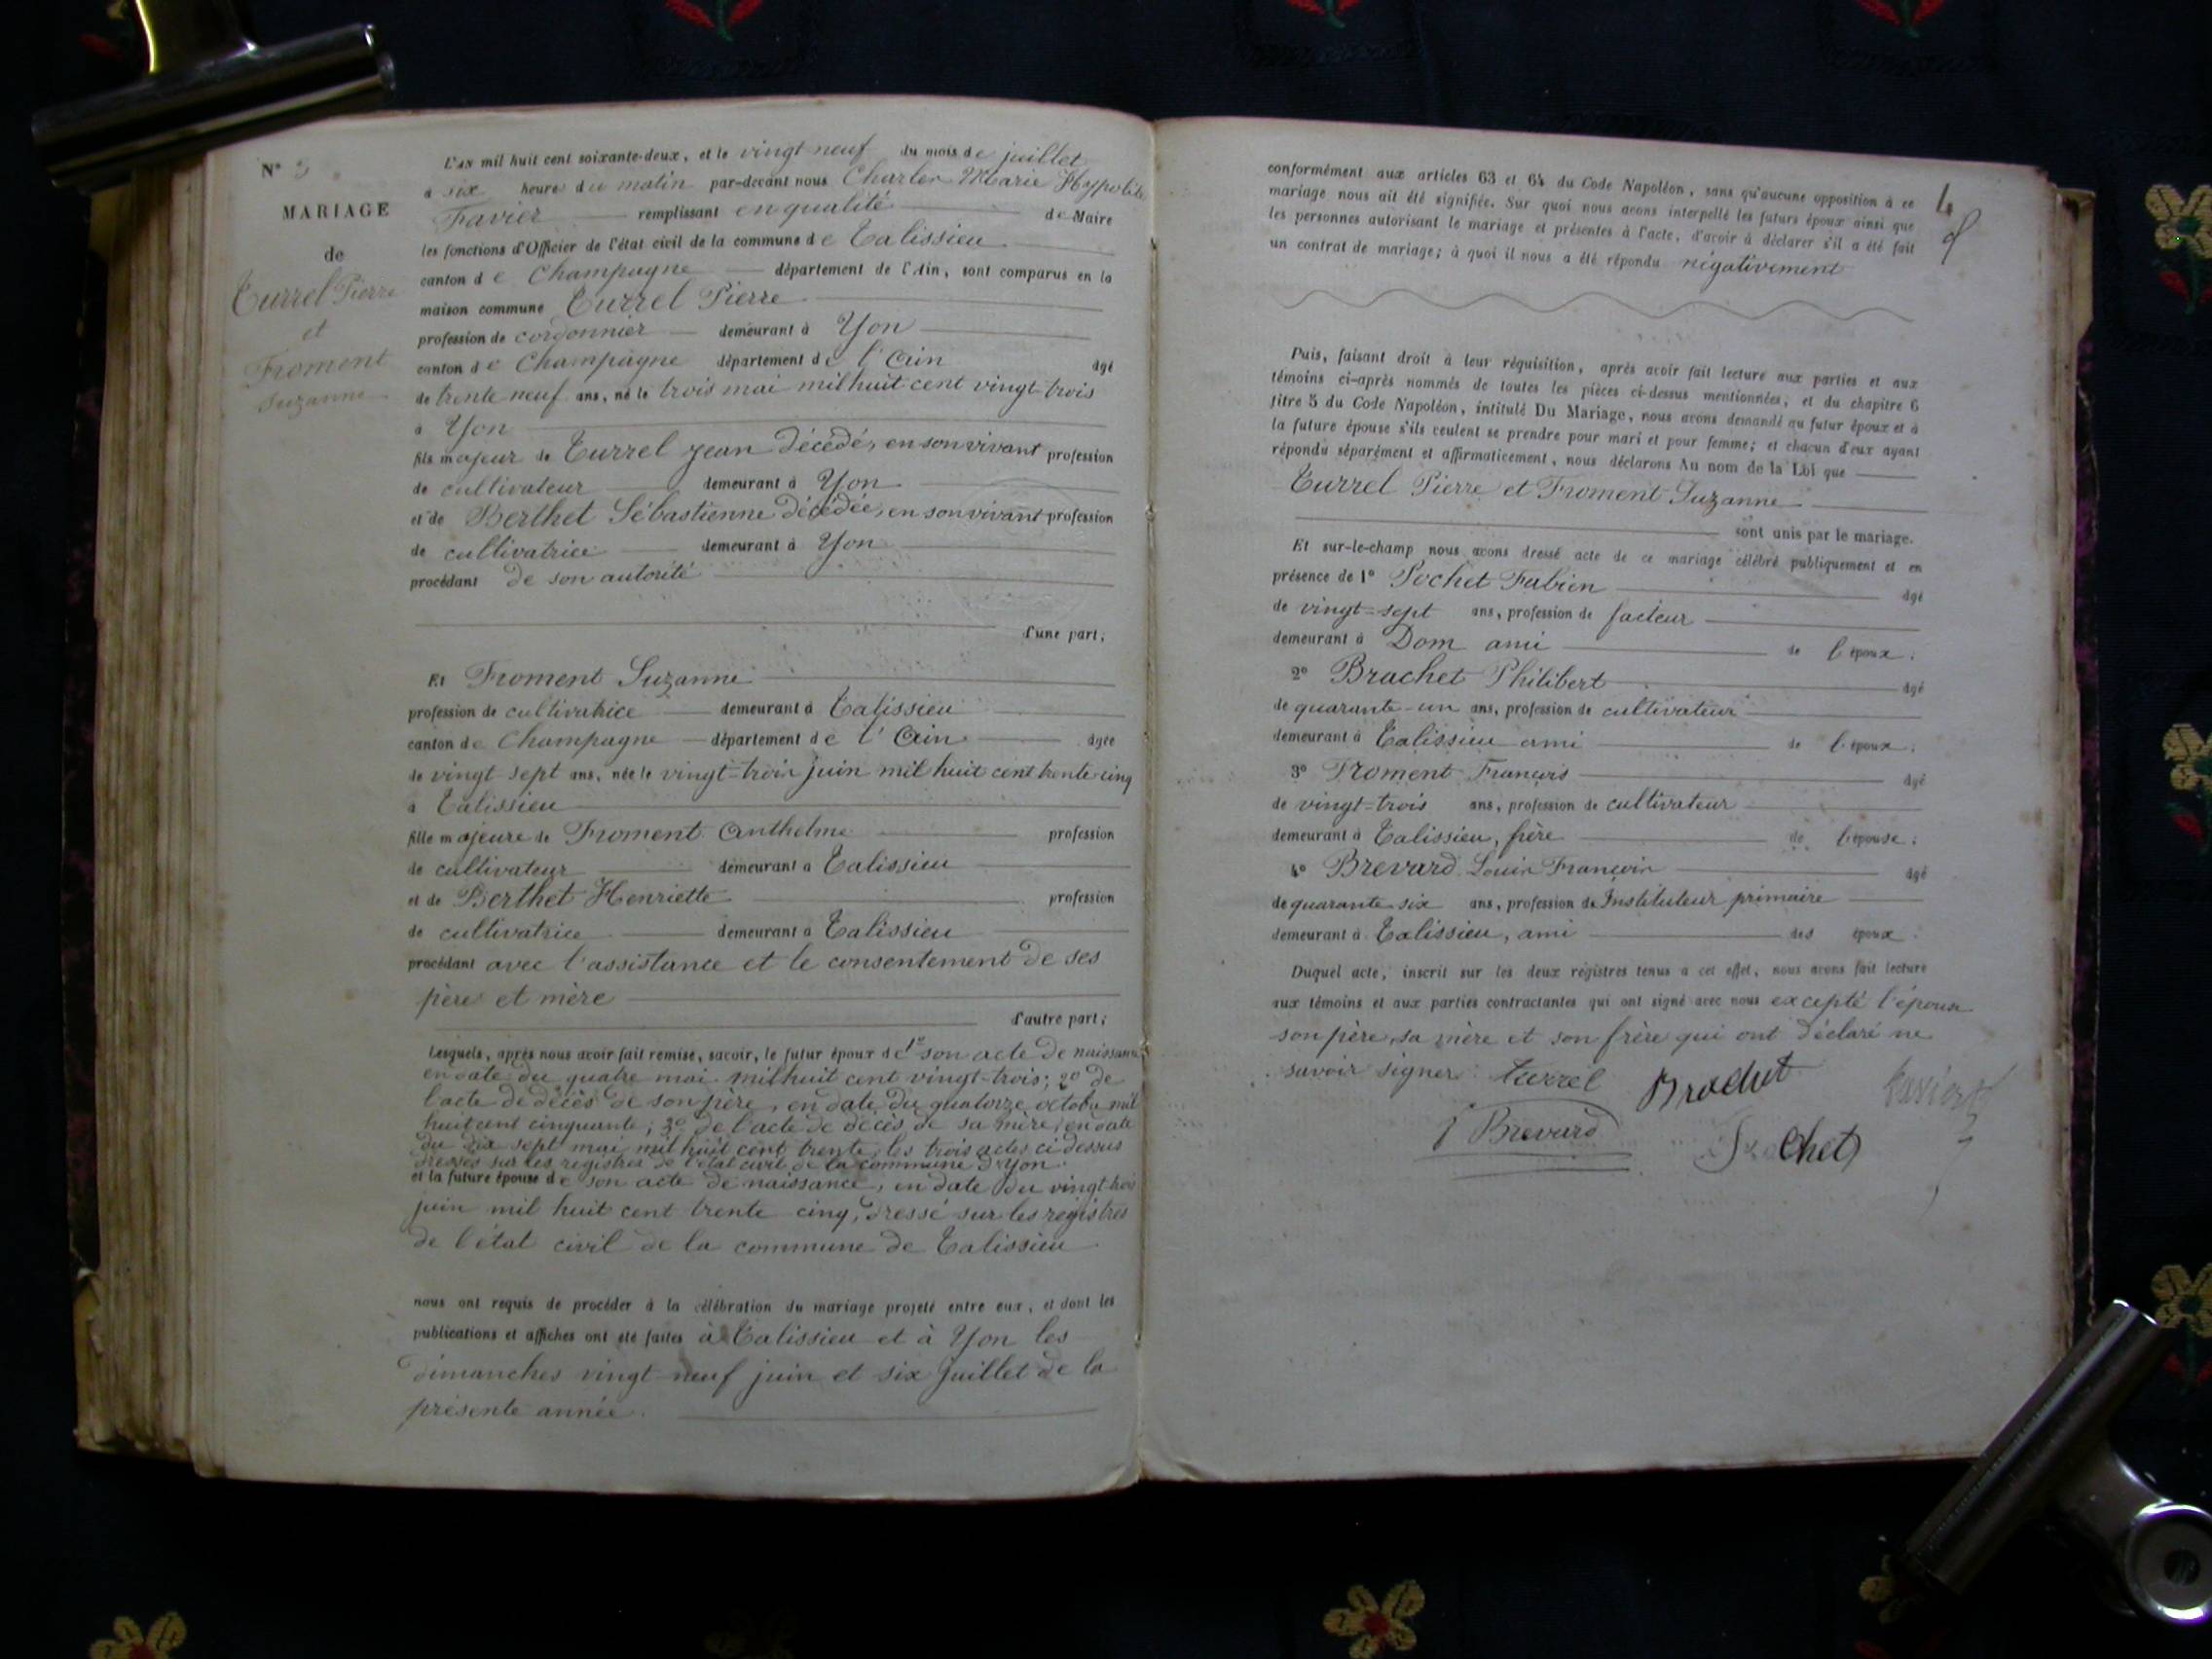 N° 3
MARIAGE
de
Turrel Pierre
et
Froment
Suzanne
L'AN mil huit cent soixante-deux, et le vingt neuf du mois de juillet
à six heure du matin par-devant nous Charles Marie Hypolite
Favier remplissant en qualité de Maire
les fonctions d'Officier de l'état civil de la commune de Talissieu
canton de Champagne département de l'Ain, sont comparus en la
maison commune Turrel Pierre
profession de cordonnier demeurant à Yon
canton de Champagne département de l'Ain âgé
de trente neuf ans, né le trois mai mil huit cent vingt trois
à Yon
fils majeur de Turrel Jean décédé, en son vivant profession
de cultivateur demeurant à Yon
et de Berthet Sébastienne décédée, en son vivant profession
de cultivatrice demeurant à Yon
procédant de son autorité
d'une part;
Et Froment Suzanne
profession de cultivatrice demeurant à Talissieu
canton de Champagne département de l'Ain âgée
de vingt sept ans, née le vingt-trois juin mil huit cent trente cinq
à Talissieu
fille majeure de Froment Anthelme profession
de cultivateur demeurant à Talissieu
et de Berthet Henriette profession
de cultivatrice demeurant à Talissieu
procédant avec l'assistance et le consentement de ses
père et mère
d'autre part;
Lesquels, après nous avoir fait remise, savoir, le futur époux de 1° son acte de naissance
en date du quatre mai mil huit cent vingt-trois; 2° de
l'acte de décès de son père, en date du quatorze octobre mil
huit cent cinquante; 3° de l'acte de décès de sa mère, en date
du dix sept mai mil huit cent trente, les trois actes ci dessus
dressés sur les registres de l'état civil de la commune d'Yon.
et la future épouse de son acte de naissance, en date du vingt-trois
juin mil huit cent trente cinq, dressé sur les registres
de l'état civil de la commune de Talissieu
nous ont requis de procéder à la célébration du mariage projeté entre eux, et dont les
publications et affiches ont été faites à Talissieu et à Yon les
dimanches vingt-neuf juin et six juillet de la
présente année.
4
conformément aux articles 63 et 64 du Code Napoléon, sans qu'aucune opposition à ce
mariage nous ait été signifiée. Sur quoi nous avons interpellé les futurs époux ainsi que
les personnes autorisant le mariage et présentes à l'acte, d'avoir à déclarer s'il a été fait
un contrat de mariage; à quoi il nous a été répondu négativement
Puis, faisant droit à leur réquisition, après avoir fait lecture aux parties et aux
témoins ci-après nommés de toutes les pièces ci-dessus mentionnées, et du chapitre 6
titre 5 du Code Napoléon, intitulé Du Mariage, nous avons demandé au futur époux et à
la future épouse s'ils veulent se prendre pour mari et pour femme; et chacun d'eux ayant
répondu séparément et affirmativement, nous déclarons Au nom de la Loi que
Turrel Pierre et Froment Suzanne
sont unis par le mariage.
Et sur-le-champ nous avons dressé acte de ce mariage célébré publiquement et en
présence de 1° Pochet Fabien âgé
de vingt-sept ans, profession de facteur
demeurant à Dom ami de l'époux;
2° Brachet Philibert âgé
de quarante-un ans, profession de cultivateur
demeurant à Talissieu ami de l'époux;
3° Froment François âgé
de vingt-trois ans, profession de cultivateur
demeurant à Talissieu, frère de l'épouse;
4° Brevard Louis François âgé
de quarante six ans, profession de Instituteur primaire
demeurant à Talissieu, ami des époux.
Duquel acte, inscrit sur les deux régistres tenus à cet effet, nous avons fait lecture
aux témoins et aux parties contractantes qui ont signé avec nous excepté l'épouse
son père, sa mère et son frère qui ont déclaré ne
savoir signer. Turrel Brachet Favier
Brevard Pochet